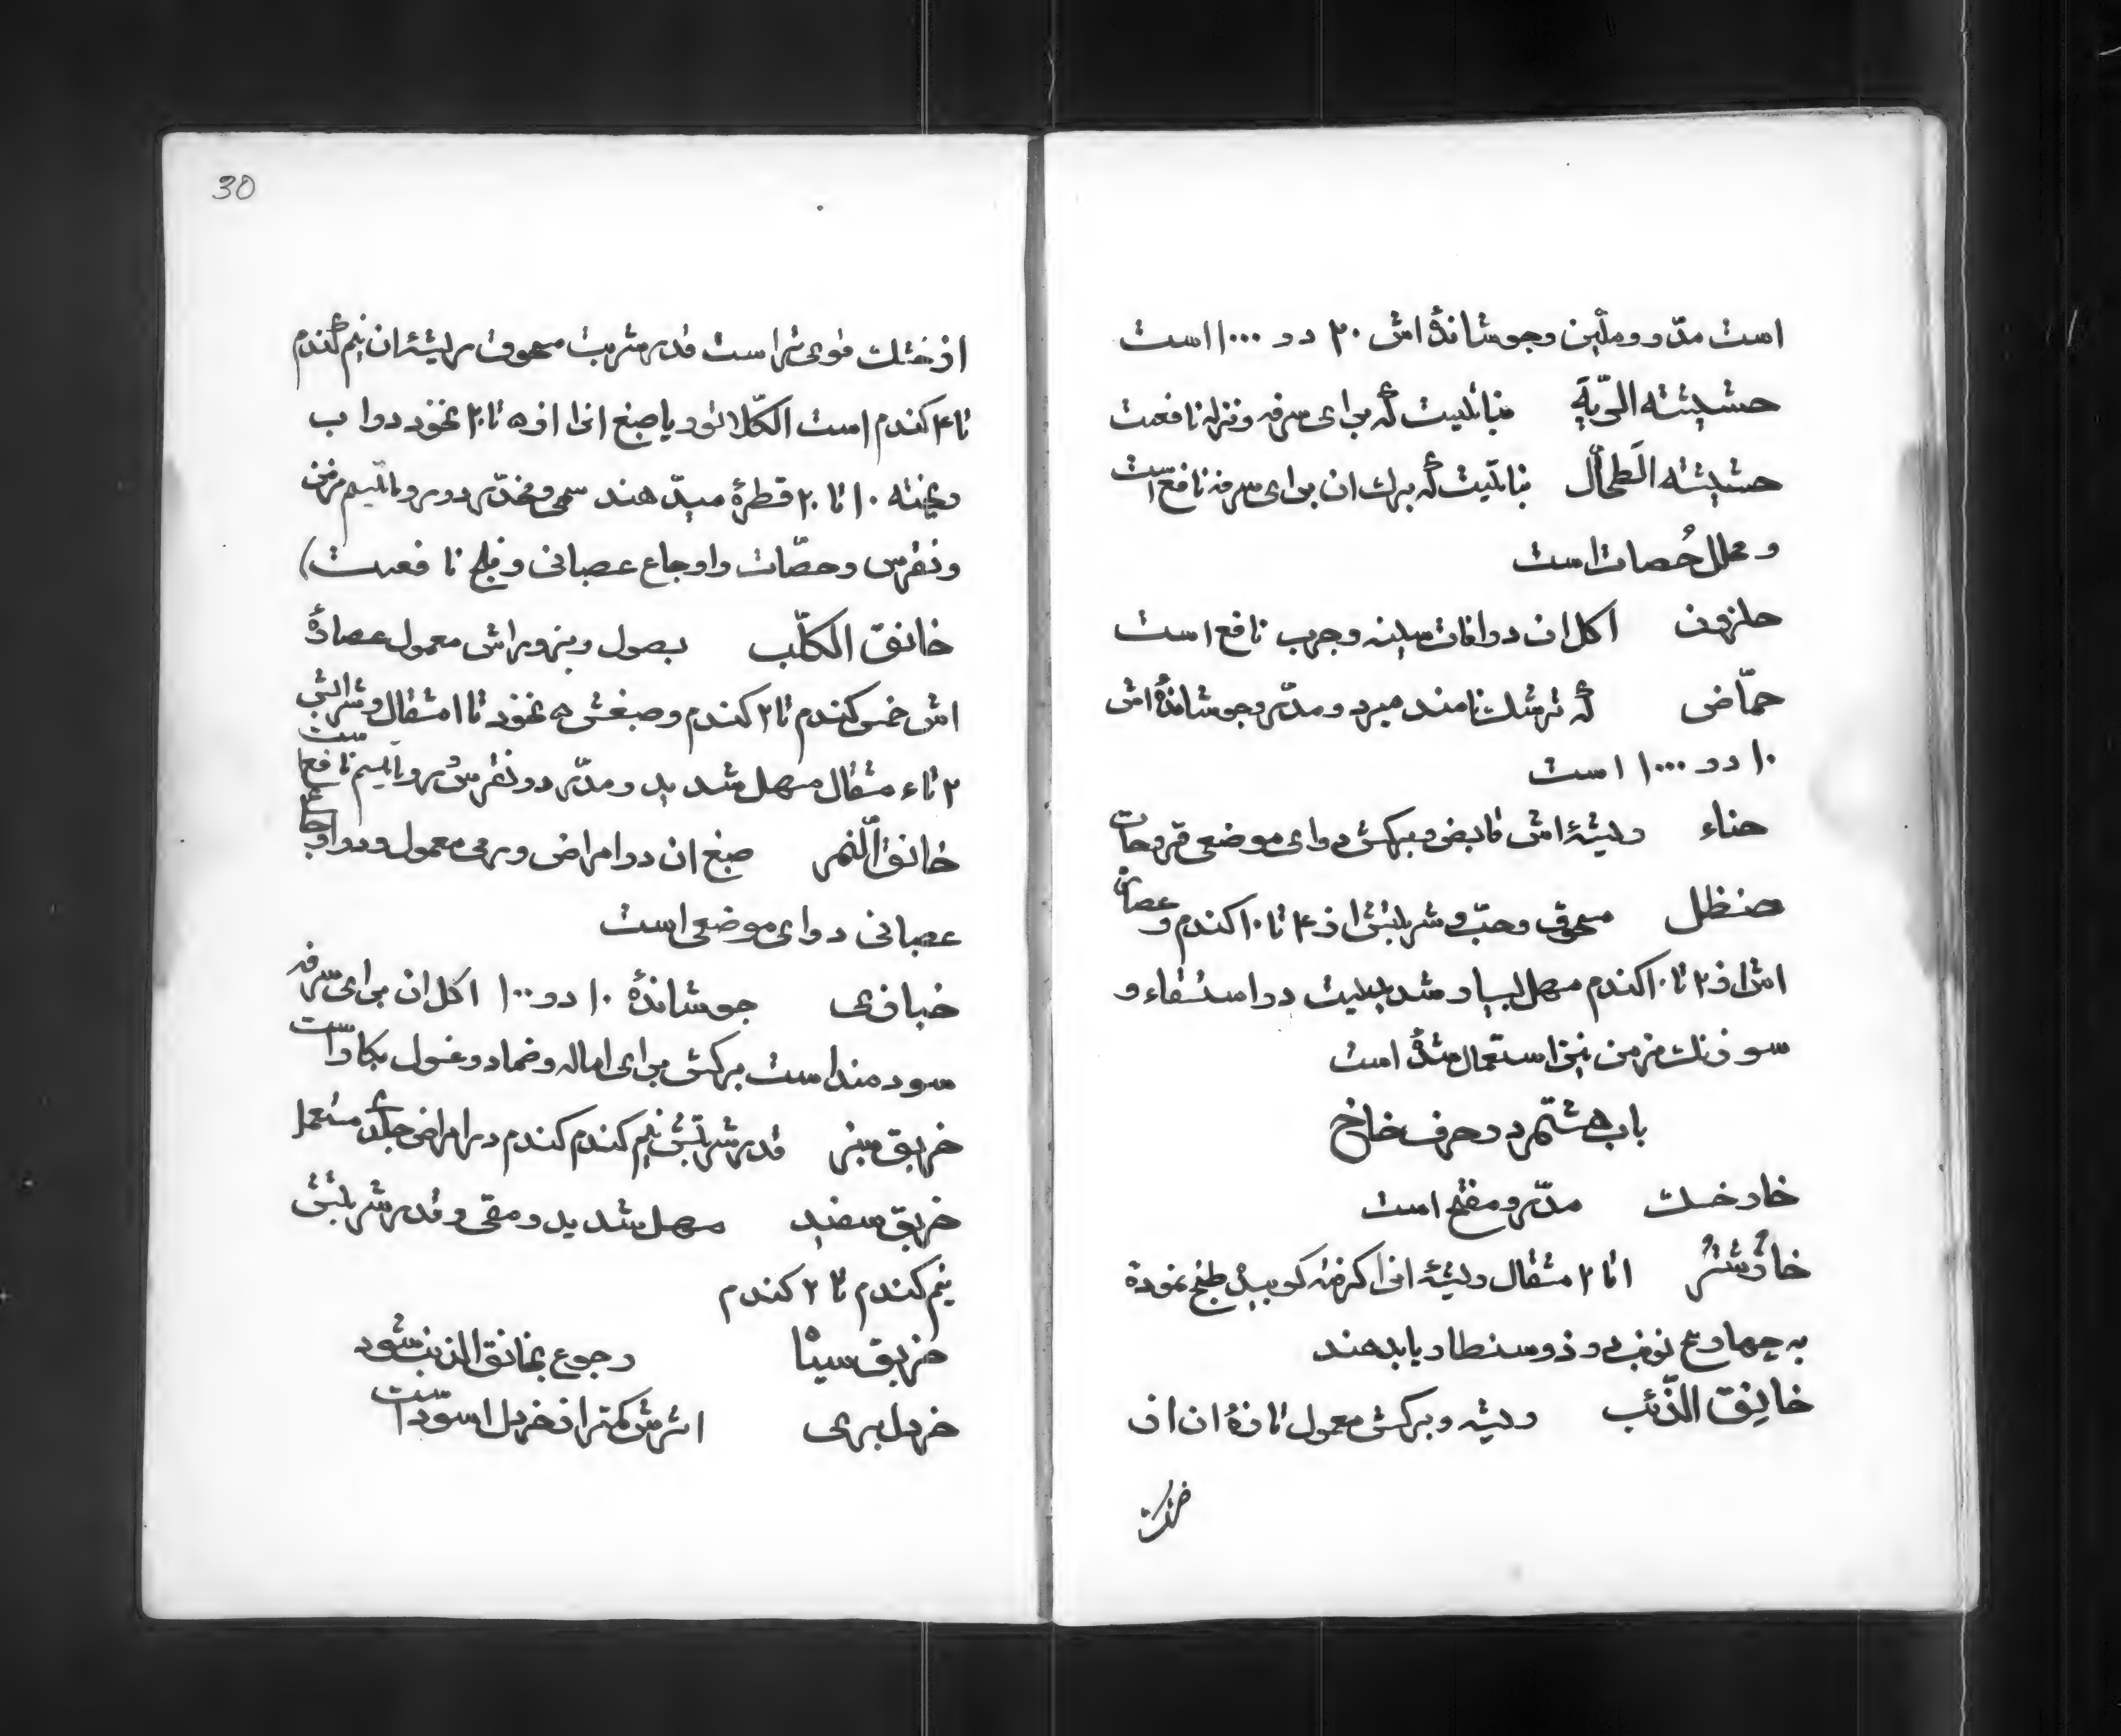 است مدّر و ملیّن و جوشاندۀ اش ۲۰ در ۱۰۰۰ است
حشیشته الرّیّه نباتیست که برای سرفه و نزله نافعست
حشیشته الطحال نباتیست که برك ان برای سرفه نافع است
و محلل حُصات است
حلزون اکل ان در افات سینه و جرب نافع است
حمّاض که ترشك نامند مبرد و مدّر و جوشاندۀ اش
۱۰ در ۱۰۰۰ است
حناء ریشۀ اش قابض و برکش دوای موضعی قروحات
حنظل مسحوق و حبّ و شربتش از ۴ تا ۱۰ کندم و عصارۀ
اش از ۲ تا ۱۰ کندم مسهل بسیار شدیدیست در استسقاء و
سوزنك مزمن نیز استعمال شدۀ است
باب هشتم در حرف خا خ
خار خسك مدّر و مفتح است
خارشتر ۱ تا ۲ مثقال ریشۀ انرا کرفته کوبیدۀ طبخ نمودۀ
به چهار تب نوبۀ و ذوسنطاریا بدهند
خانِق الذّئب ریشه و برکش معمول تازۀ ان از
خشك
30
از خشك قوی تر است قدر شربت مسحوق ریشۀ ان نیم کندم
تا ۴ کندم است الکلاتور یا صبغ انرا از ۵ تا ۲۰ نخود در اب
ریخته ۱۰ تا ۲۰ قطرۀ میدّهند سمی و مخدّر در روماتیسم مزمن
و نقرس و حصّات و اوجاع عصبانی و فلج نافعست)
خانق الکلّب بصول و بزوراش معمول عصارۀ
اش خمس کندم تا ۲ کندم و صبغش ۵ نخود تا ۱ مثقال و شرابش
۲ تا ۴ مثقال مسهل شدید و مدّر در نقرس و روماتیسم نافع است
خانق النّمر صبغ ان در امراض ورمی معمول و در اوجاع
عصبانی دوای موضعی است
خبازی جوشاندۀ ۱۰ در ۱۰۰ اکل ان برای سرفه
سودمند است برکش برای اماله و ضماد و غسول بکار است
خربق سبز قدر شربتش نیم کندم کندم در امراض جلدی مستعمل
خربق سفید مسهل شدید و مقی و قدر شربتش
نیم کندم تا ۲ کندم
خربق سیا رجوع بخانق الذئب شود
خردل بری اثرش کمتر از خردل اسود است